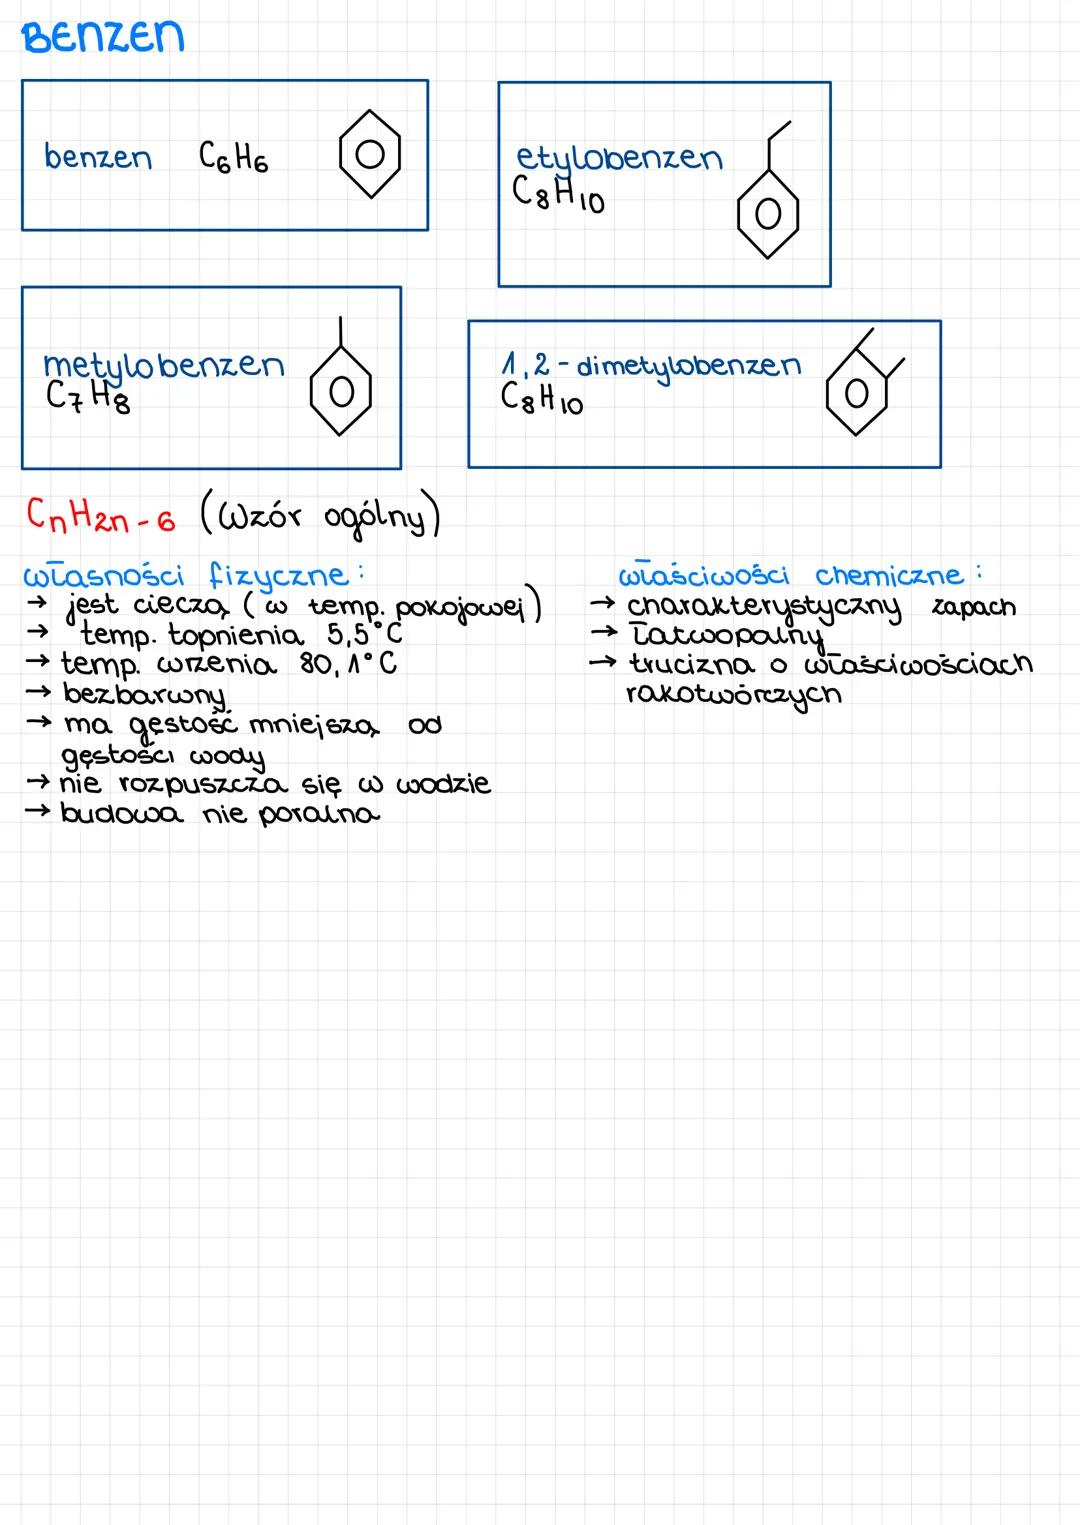 BENZEN
benzen C₆H₆
etylobenzen
C₈H₁₀
metylobenzen
C₇H₈
1,2-dimetylobenzen
C₈H₁₀
CnH2n-6 (wzór ogólny)
własności fizyczne:
→ jest cieczą (w temp. pokojowej)
→ temp. topnienia 5,5°C
→ temp. wrzenia 80,1°C
→ bezbarwny
→ ma gęstość mniejszą od
gęstości wody
→ nie rozpuszcza się w wodzie
→ budowa nie poralna
właściwości chemiczne:
→ charakterystyczny zapach
→ łatwopalny
→ trucizna o właściwościach
rakotwórczych